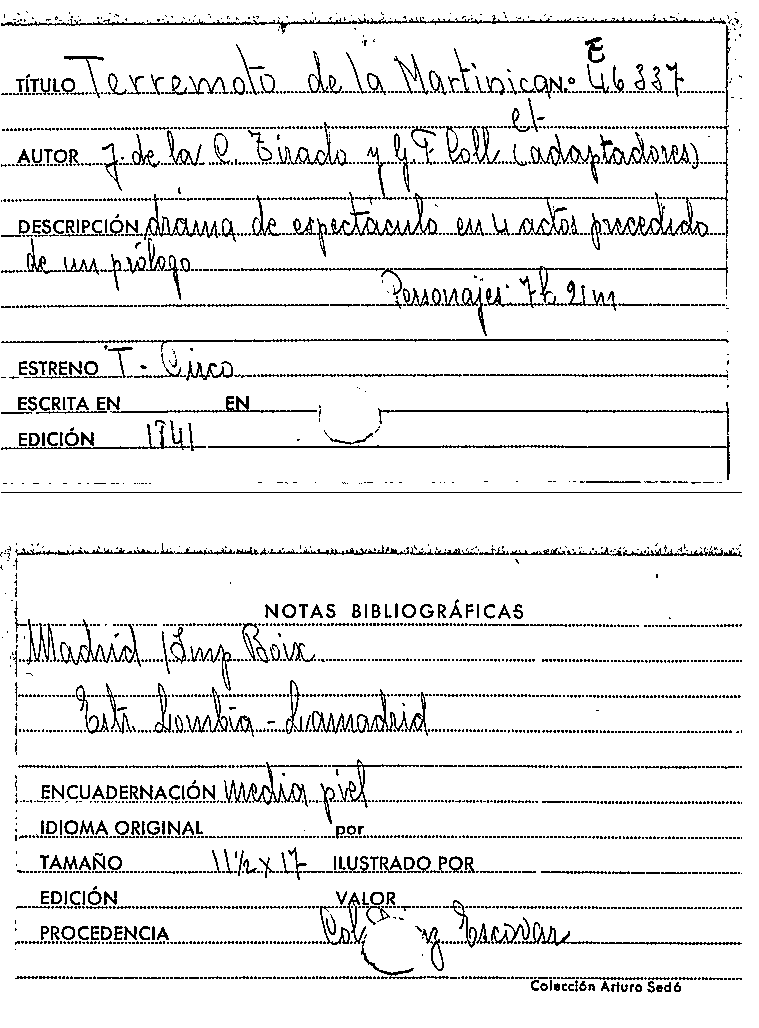 E
TÍTULO Terremoto de la Martinica N.º 46337
et
AUTOR J. de la C. Tirado y G. F. Coll (adaptadores)
DESCRIPCIÓN drama de espectáculo en 4 actos precedido
de un prólogo
Personajes: 7h 21m
ESTRENO T. Circo
ESCRITA EN EN
EDICIÓN 1841
NOTAS BIBLIOGRÁFICAS
Madrid / Imp Boix
Estr. Lombía - Lamadrid
ENCUADERNACIÓN media piel
IDIOMA ORIGINAL por
TAMAÑO 11½ x 17 ILUSTRADO POR
EDICIÓN VALOR
PROCEDENCIA Col Escovar
Colección Arturo Sedó